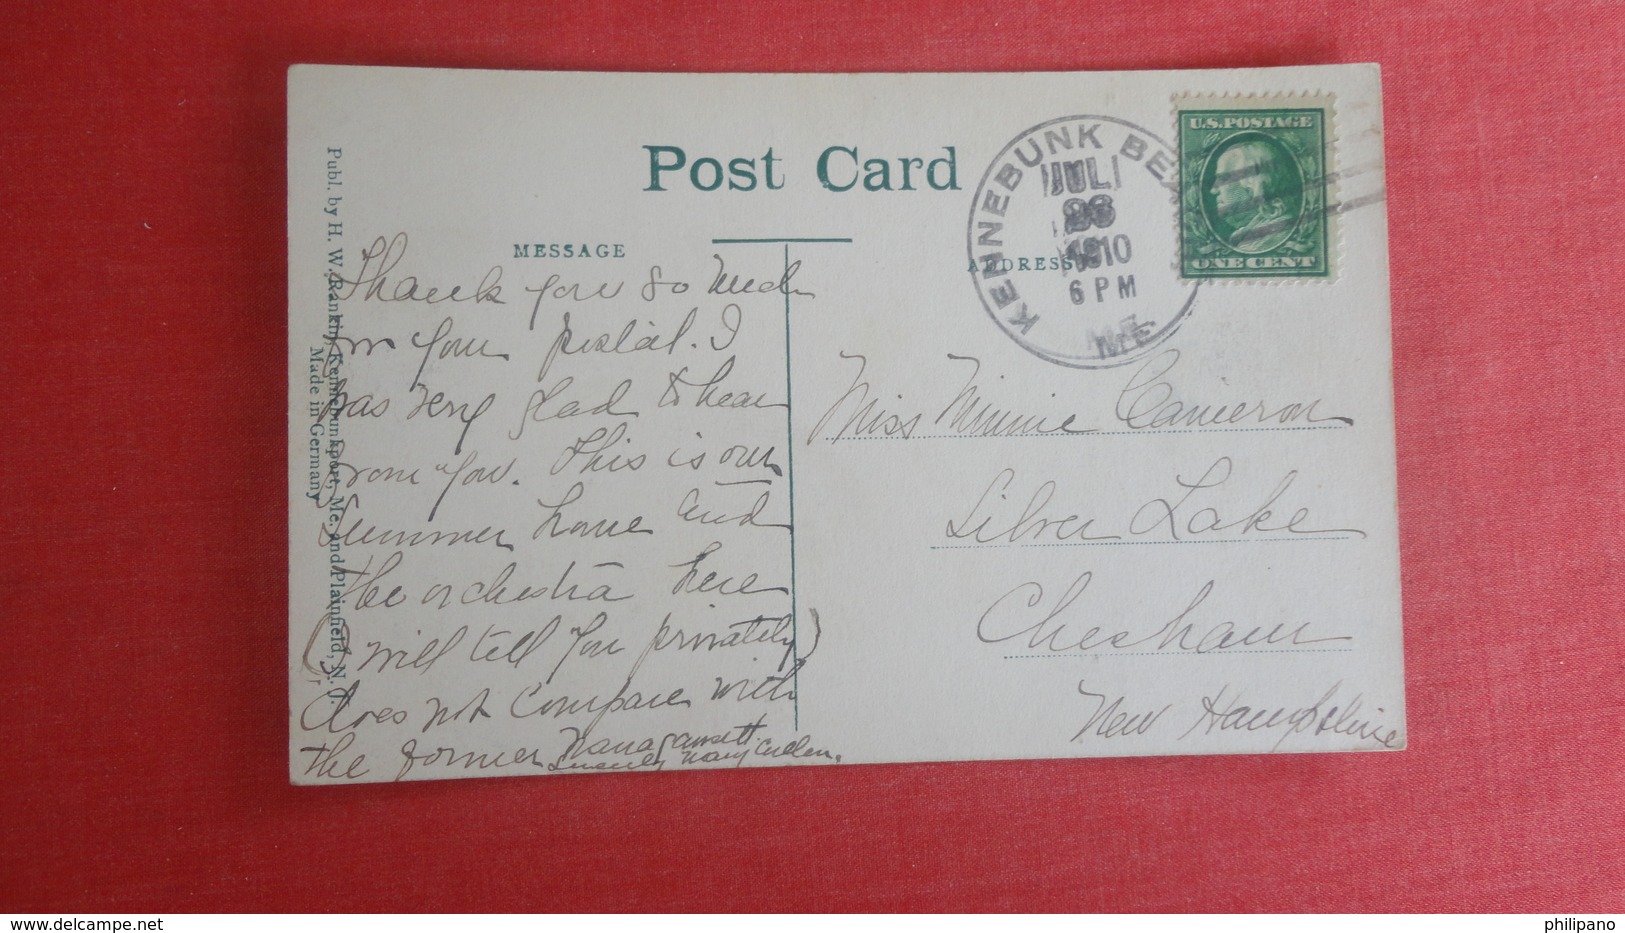 Post Card
MESSAGE
ADDRESS
KENNEBUNK BE
JUL
1910
6 PM
ME.
U.S.POSTAGE
ONE CENT
Publ. by H. W. Rankin, Kennebunkport, Me. and Plainfield, N. J.
Made in Germany
Thank you so much
for your postal. I
was very glad to hear
from you. This is our
summer home and
the orchestra here
(I will tell you privately)
does not compare with
the former Naragansett.
Sincerely Mary Cullen.
Miss Minnie Cameron
Silver Lake
Chesham
New Hampshire
philipano